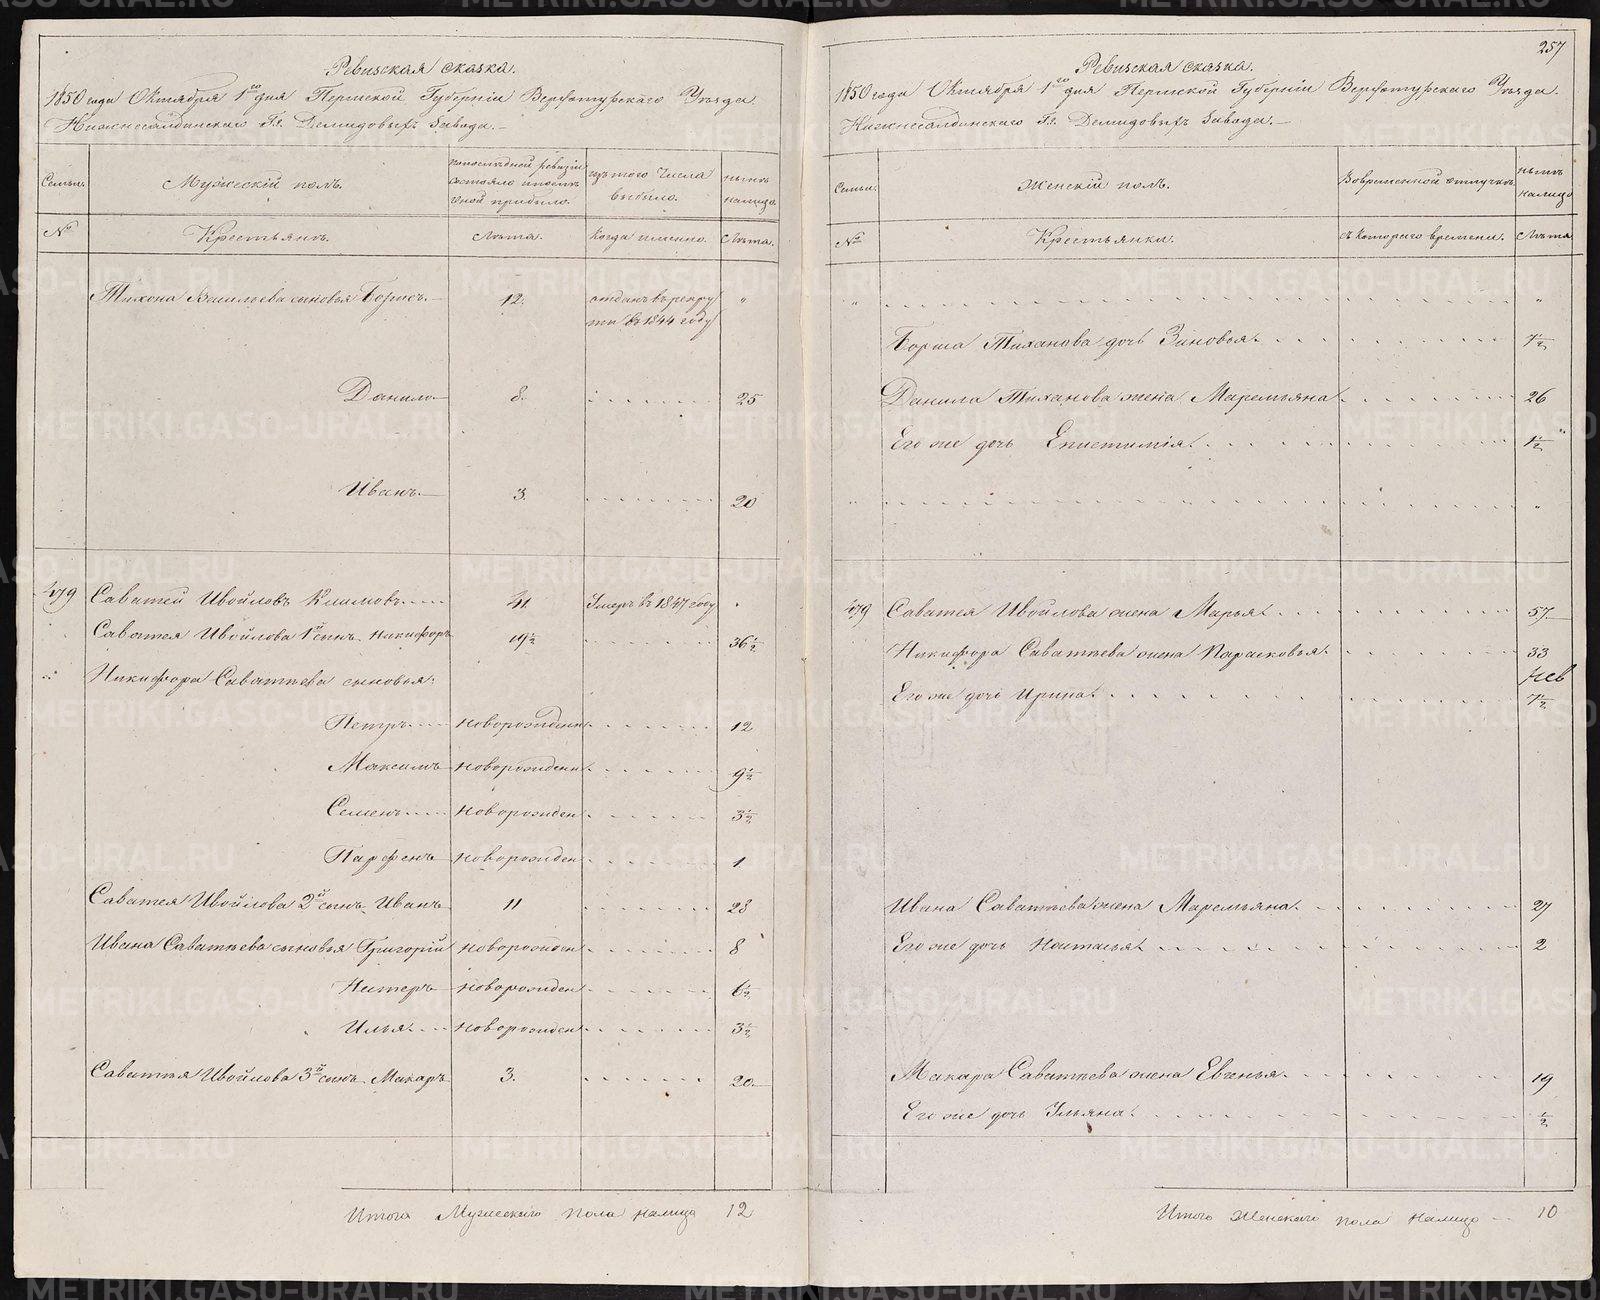 Ревизская сказка.
1850 года Октября 1го дня Пермской Губерніи Верхотурскаго Уѣзда.
Нижнесалдинскаго Гг. Демидовыхъ Завода.
Семьи.
Мужескій полъ.
По последней ревизіи состояло и после оной прибыло.
Изъ того числа выбыло.
Нынѣ налицо.
№
Крестьянъ.
Лѣта.
Когда именно.
Лѣта.
Тихона Васильева сыновья Борисъ. 12. отданъ въ рекру
ты въ 1844 году "
Данило 8. 25
Иванъ. 3. 20
479 Саватей Ивойловъ Климовъ 41 Умеръ въ 1847 году
Саватея Ивойлова 1й сынъ Никифоръ 19½ 36½
Никифора Саватеева сыновья:
Петръ новорожденн. 12
Максимъ новорожденн. 9½
Семенъ новорожден 3½
Парфенъ новорожден 1
Саватея Ивойлова 2й сынъ Иванъ 11 28
Ивана Саватеева сыновья Григорій новорожден 8
Нестеръ новорожден 6½
Илья новорожден 3½
Саватея Ивойлова 3й сынъ Макаръ 3. 20
Итого Мужескаго пола налицо 12
257
Ревизская сказка.
1850 года Октября 1го дня Пермской Губерніи Верхотурскаго Уѣзда.
Нижнесалдинскаго Гг. Демидовыхъ Завода.
Семьи.
Женскій полъ.
Во временной отлучкѣ.
Нынѣ налицо
№
Крестьянки.
Съ котораго времени.
Лѣта
Бориса Тиханова дочь Зиновья. 7½
Данила Тиханова жена Маремьяна 26
Его же дочь Епистимія 1½
479 Саватея Ивойлова жена Марья 57
Никифора Саватеева жена Парасковья. 33
Его же дочь Ирина. 7½
Ивана Саватеева жена Маремьяна. 27
Его же дочь Настасья 2
Макара Саватеева жена Евгенья. 19
Его же дочь Ульяна. ½
Итого Женскаго пола налицо 10
METRIKI.GASO-URAL.RU